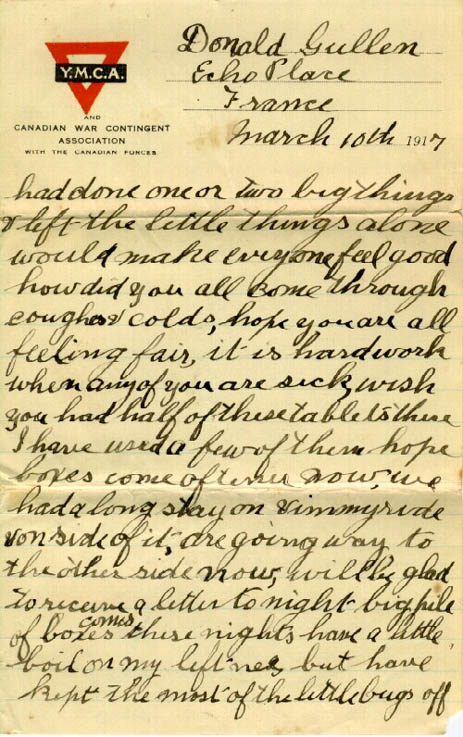 Donald Gullen
Echo Place
France
March 10th 1917
Y.M.C.A.
AND
CANADIAN WAR CONTINGENT
ASSOCIATION
WITH THE CANADIAN FORCES
had done one or two big things
& left the little things alone
would make everyone feel good
how did you all come through
coughes & colds, hope you are all
feeling fair, it is hard work
when any of you are sick, wish
you had half of these tablets there
I have used a few of them hope
boxes come often now, we
had a long stay on vimmy
on side of it, are going way to
the other side now, will be glad
to receive a letter to night big pile
of boxes comes these nights have a little
boil on my left but have
kept the most of the little bugs off